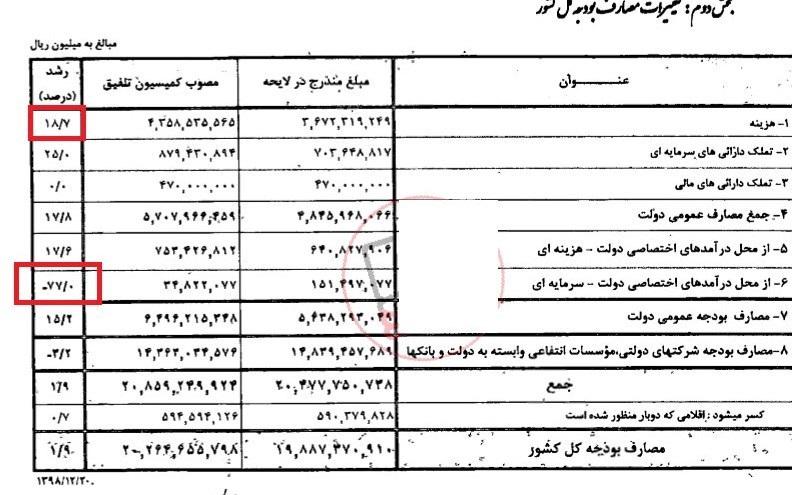 بخش دوم: تغییرات مصارف بودجه کل کشور
مبالغ به میلیون ریال
عنـــــوان مبلغ مندرج در لایحه مصوب کمیسیون تلفیق رشد (درصد)
۱- هزینه ۳,۶۷۲,۳۱۹,۲۴۹ ۴,۳۵۸,۵۳۵,۵۶۵ ۱۸/۷
۲- تملک دارائی های سرمایه ای ۷۰۳,۶۴۸,۸۱۷ ۸۷۹,۴۳۰,۸۹۴ ۲۵/۰
۳- تملک دارائی های مالی ۴۷۰,۰۰۰,۰۰۰ ۴۷۰,۰۰۰,۰۰۰ ۰/۰
۴- جمع مصارف عمومی دولت ۴,۸۴۵,۹۶۸,۰۶۶ ۵,۷۰۷,۹۶۶,۴۵۹ ۱۷/۸
۵- از محل درآمدهای اختصاصی دولت - هزینه ای ۶۴۰,۸۲۷,۹۰۶ ۷۵۳,۴۲۶,۸۱۲ ۱۷/۶
۶- از محل درآمدهای اختصاصی دولت - سرمایه ای ۱۵۱,۴۹۷,۰۷۷ ۳۴,۸۲۲,۰۷۷ -۷۷/۰
۷- مصارف بودجه عمومی دولت ۵,۶۳۸,۲۹۳,۰۴۹ ۶,۴۹۶,۲۱۵,۳۴۸ ۱۵/۲
۸-مصارف بودجه شرکتهای دولتی،مؤسسات انتفاعی وابسته به دولت و بانکها ۱۴,۸۳۹,۴۵۷,۶۸۹ ۱۴,۳۶۳,۰۳۴,۵۷۶ -۳/۲
جمع ۲۰,۴۷۷,۷۵۰,۷۳۸ ۲۰,۸۵۹,۲۴۹,۹۲۴ ۱/۹
کسر میشود : اقلامی که دوبار منظور شده است ۵۹۰,۳۷۹,۸۲۸ ۵۹۴,۵۹۴,۱۲۶ ۰/۷
مصارف بودجه کل کشور ۱۹,۸۸۷,۳۷۰,۹۱۰ ۲۰,۲۶۴,۶۵۵,۷۹۸ ۱/۹
۱۳۹۸/۱۲/۲۰